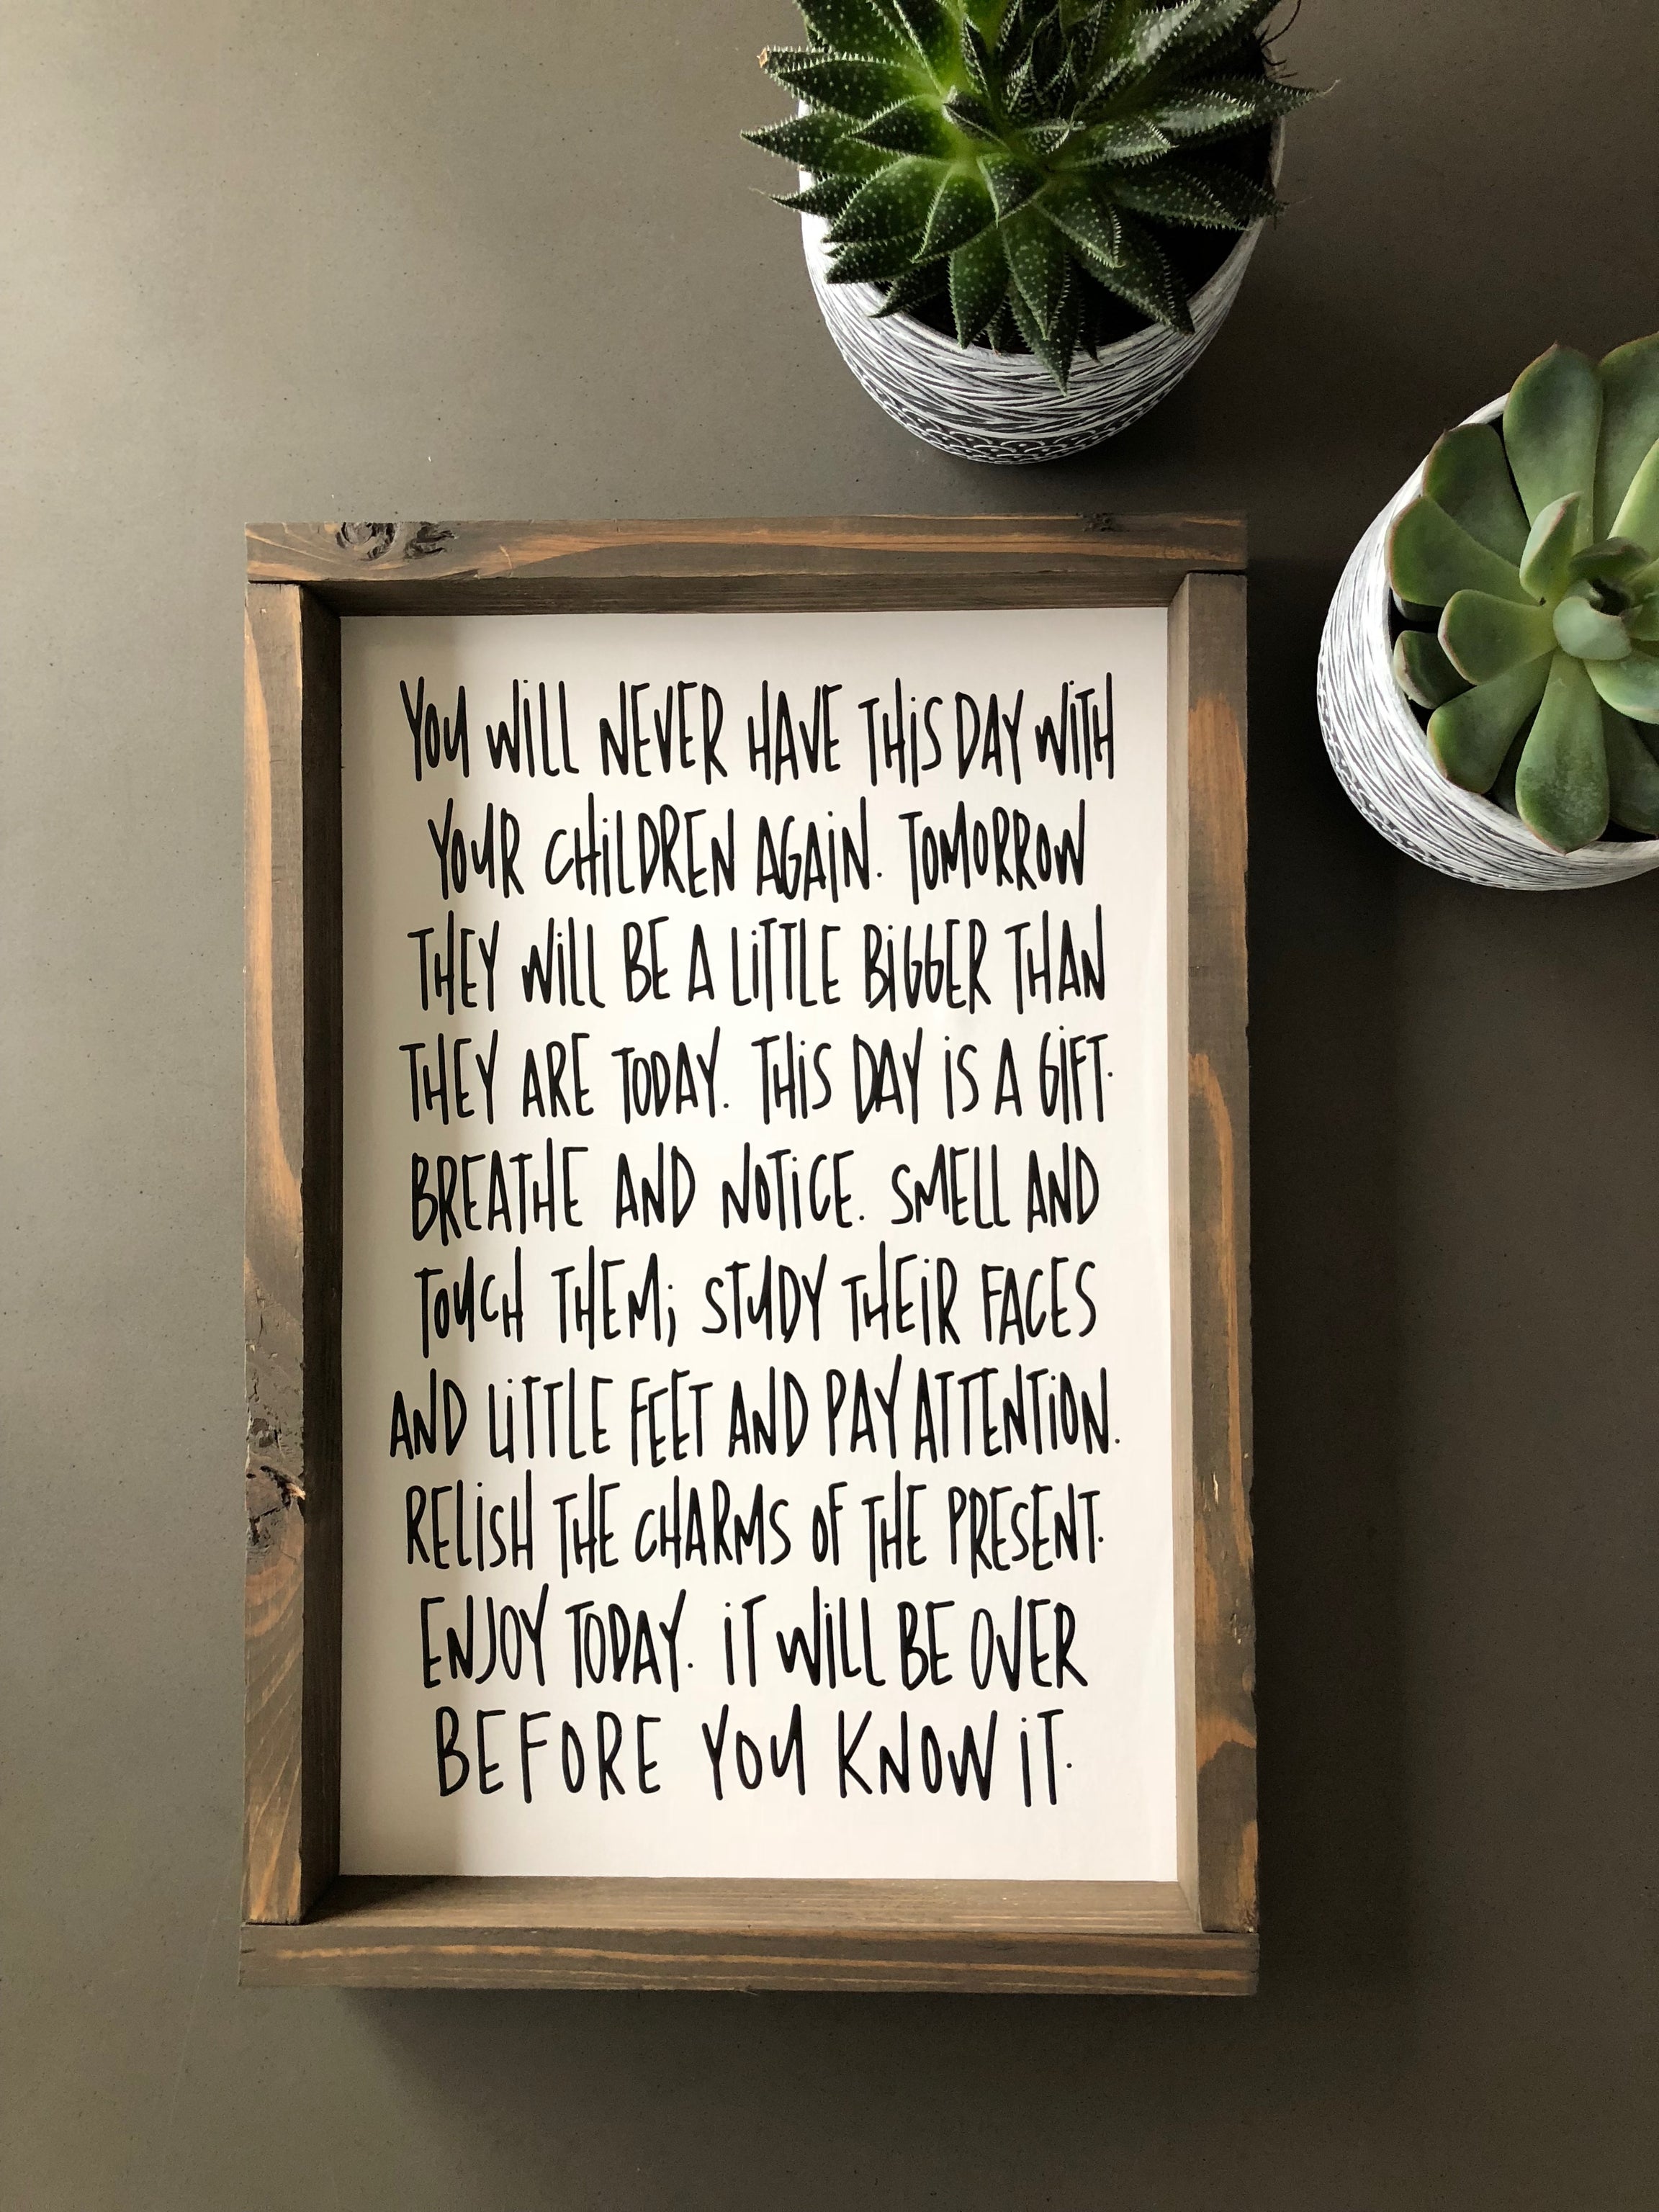 YOU WILL NEVER HAVE THIS DAY WITH
YOUR CHILDREN AGAIN. TOMORROW
THEY WILL BE A LITTLE BIGGER THAN
THEY ARE TODAY. THIS DAY IS A GIFT.
BREATHE AND NOTICE. SMELL AND
TOUCH THEM; STUDY THEIR FACES
AND LITTLE FEET AND PAY ATTENTION.
RELISH THE CHARMS OF THE PRESENT.
ENJOY TODAY. IT WILL BE OVER
BEFORE YOU KNOW IT.